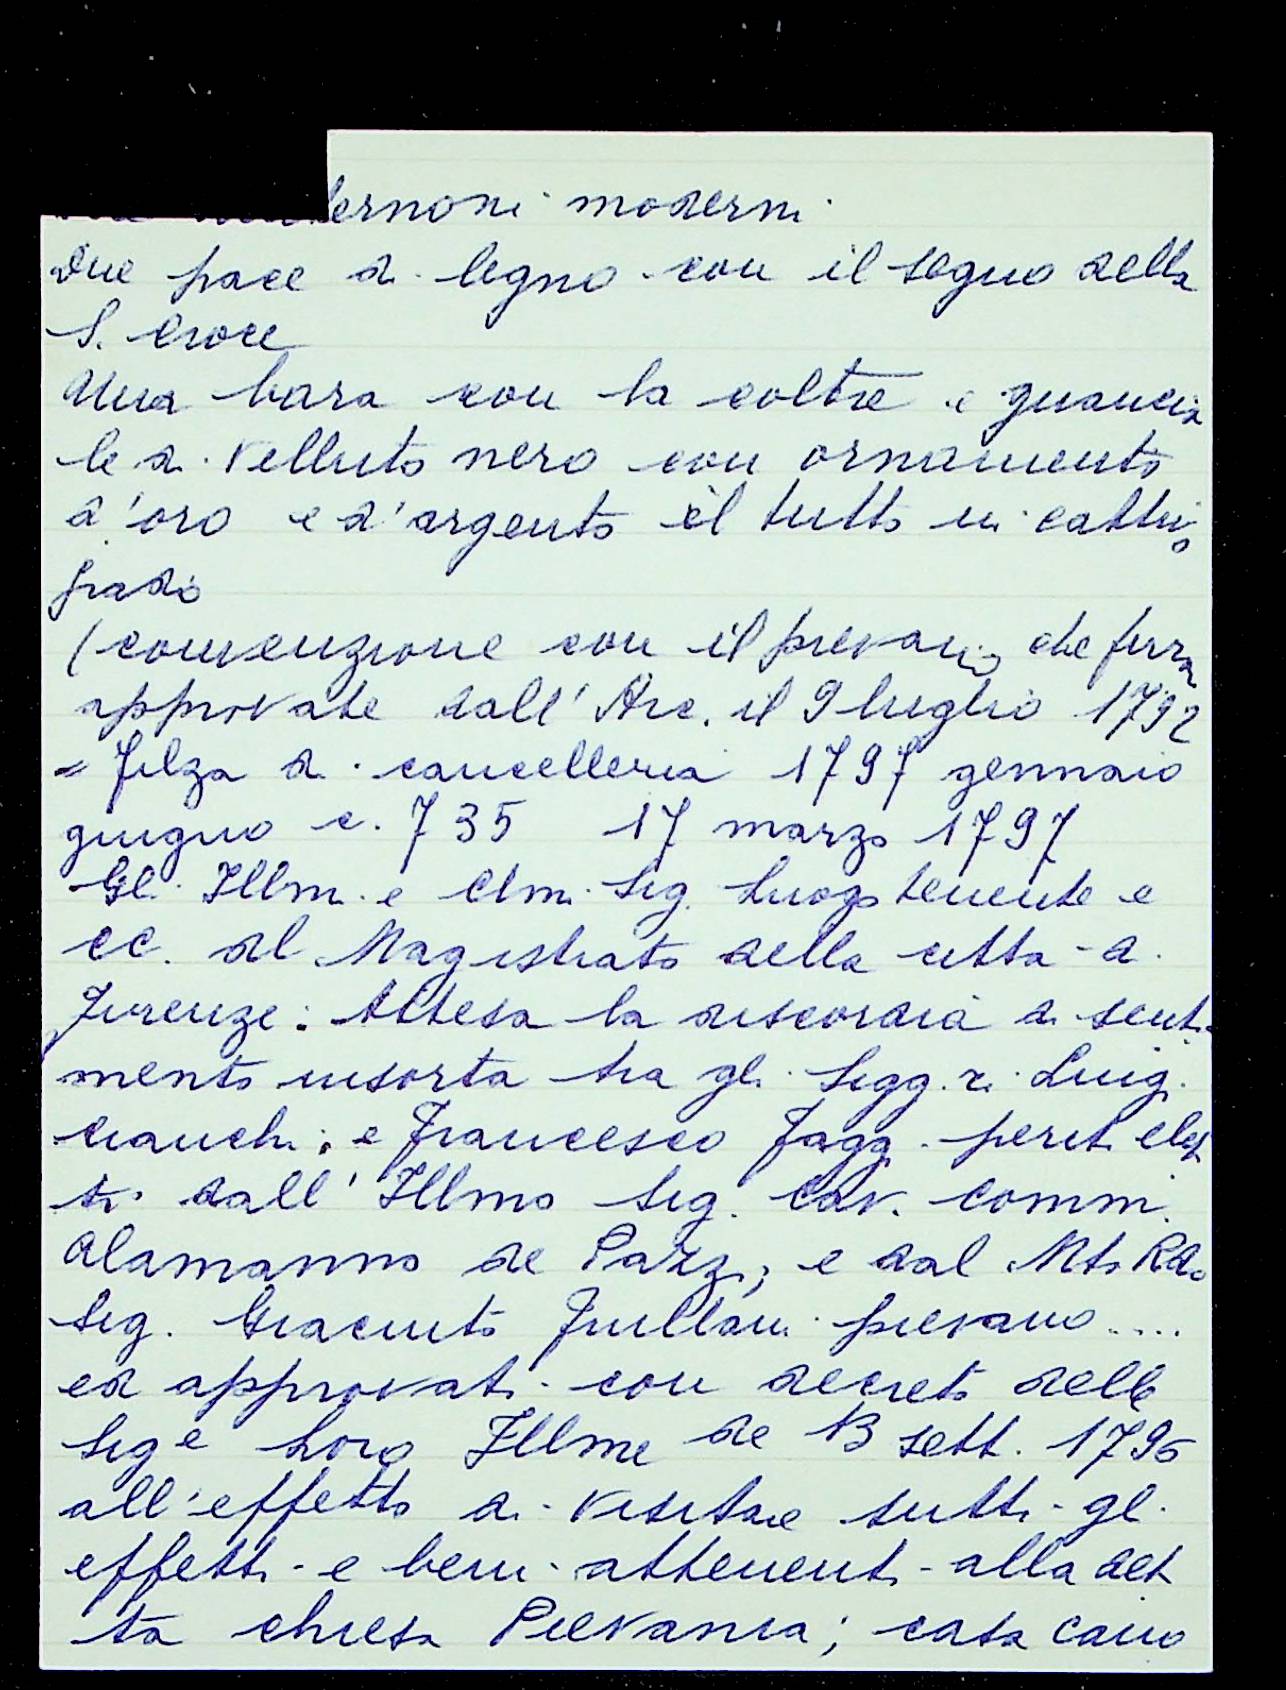 ernoni moderni
due pace di legno con il segno della
S. Croce
Una bara con la coltre e guancia
le di velluto nero con ornamento
d'oro e d'argento il tutto in cattivo
grado
(convenzione con il pievano, che furra
approvate dall' Arc. il 9 luglio 1792
= Filza di cancelleria 1797 gennaio
giugno c. 735 17 marzo 1797
Gl. Illm. e Clm. Sig. Luogotenente e
CC. del Magistrato della citta di
Firenze: Attesa la discordia di senti
mento insorta tra gli Sigg.ri Luigi
Cianchi; e Francesco Faggi periti elet
ti dall' Illmo Sig. Cav. Comm.
Alamanno de Pazzi, e dal Mto Rdo
Sig. Giacinto Fiullani pievano ....
ed approvati con decreto delle
Sig.e Loro Illme de 13 sett. 1796
all'effetto di visitare tutti gli
effetti e beni attenenti alla det
ta chiesa Pievania; casa cano